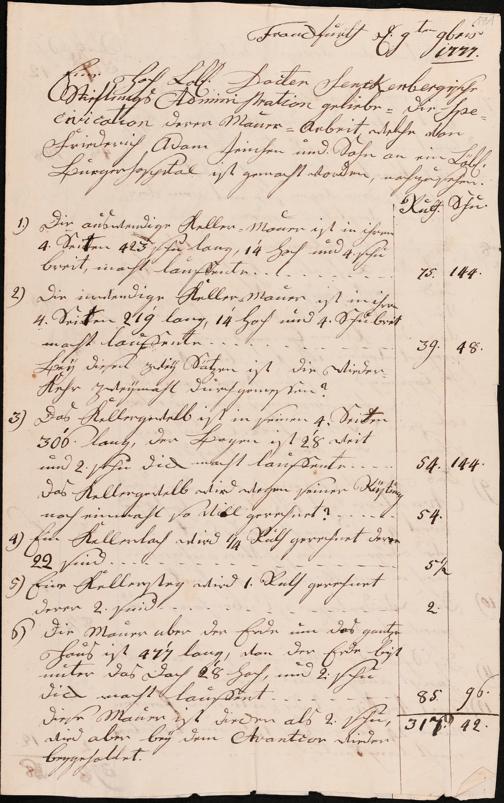 Franckfurth d. 9ten 9bris
1777.
Eine Hochlöbl. Docter Senckenbergische
Stifftungs Administration geliebe die Spe=
civication derer Mauer=Arbeit welche von
Friederich Adam Heinchen und Sohn an ein Löbl.
Bürgerhospital ist gemacht worden, nachzusehen.
Ruth. Schu.
1) Die auswendige Keller=Mauer ist in ihren
4. Seiten 423 schu lang, 14 hoch und 4. schu
breit, macht lauffente 75. 144.
2) Die inwendige Keller=Mauer ist in ihre
4. Seiten 219 lang, 14 hoch und 4. Schu breit
macht lauffente 39. 48.
Bey diesen zwey Sätzen ist die Wieder
Kehr zweymahl durchgemessen?
3) Das Kellergewelb ist in seinen 4. Seiten
306. lang, der Bogen ist 28 weit
und 2. schu dick macht lauffente 54. 144.
das Kellergewelb wird wegen seiner Rüstung
noch einmahl so viell gerechnet? 54.
4) Ein Kellerloch wird 1/4 Ruth gerechnet deren
22 sind 5 1/2
5) Eine Kellersteg wird 1. Ruth gerechnet
derer 2. sind 2.
6) Die Mauer uber der Erde um das gantze
Haus ist 477 lang, von der Erde biß
unter das Dach 28 hoch, und 2. schu
dick macht lauffent 85 96.
diese Mauer ist dicker als 2. schu, 317. 42.
wird aber bey dem wieder
beygefallet.